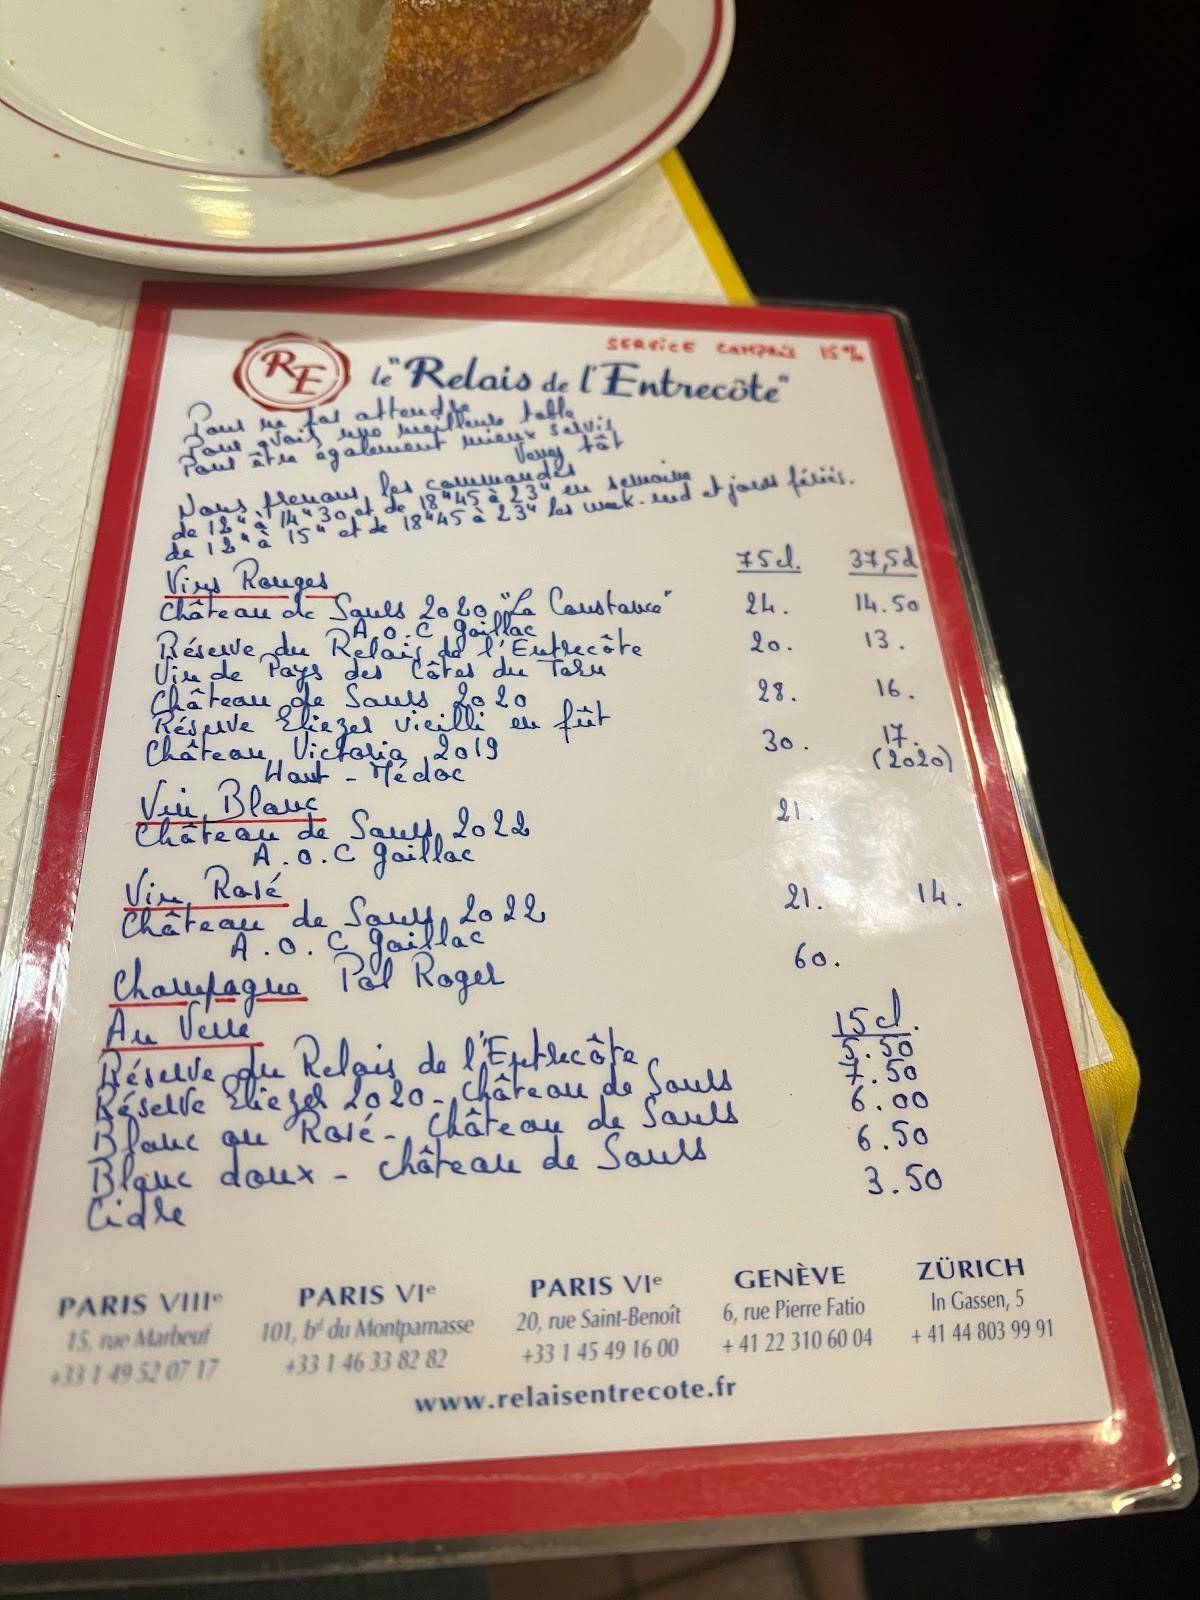 SERVICE COMPRIS 15%
RE
le "Relais de l'Entrecôte"
Pour ne pas attendre
Pour avoir une meilleure table
Pour être également mieux servis
Venez tôt
Nous prenons les commandes
de 12h à 14h30 et de 18h45 à 23h en semaine
de 12h à 15h et de 18h45 à 23h les week-end et jours fériés.
Vins Rouges 75cl. 37,5cl
Château de Saurs 2020 "La Constance" 24. 14.50
A.O.C Gaillac
Réserve du Relais de l'Entrecôte 20. 13.
Vin de Pays des Côtes du Tarn
Château de Saurs 2020 28. 16.
Réserve Eliezer vieilli en fût
Château Victoria 2019 30. 17.
Haut-Médoc (2020)
Vin Blanc
Château de Saurs 2022 21.
A.O.C Gaillac
Vin Rosé
Château de Saurs 2022 21. 14.
A.O.C Gaillac
Champagne Pol Roger 60.
Au Verre 15cl.
Réserve du Relais de l'Entrecôte 5.50
Réserve Eliezer 2020 - Château de Saurs 7.50
Blanc ou Rosé - Château de Saurs 6.00
Blanc doux - Château de Saurs 6.50
Cidre 3.50
PARIS VIIIe PARIS VIe PARIS VIe GENÈVE ZÜRICH
15, rue Marbeuf 101, bd du Montparnasse 20, rue Saint-Benoît 6, rue Pierre Fatio In Gassen, 5
+33 1 49 52 07 17 +33 1 46 33 82 82 +33 1 45 49 16 00 + 41 22 310 60 04 + 41 44 803 99 91
www.relaisentrecote.fr